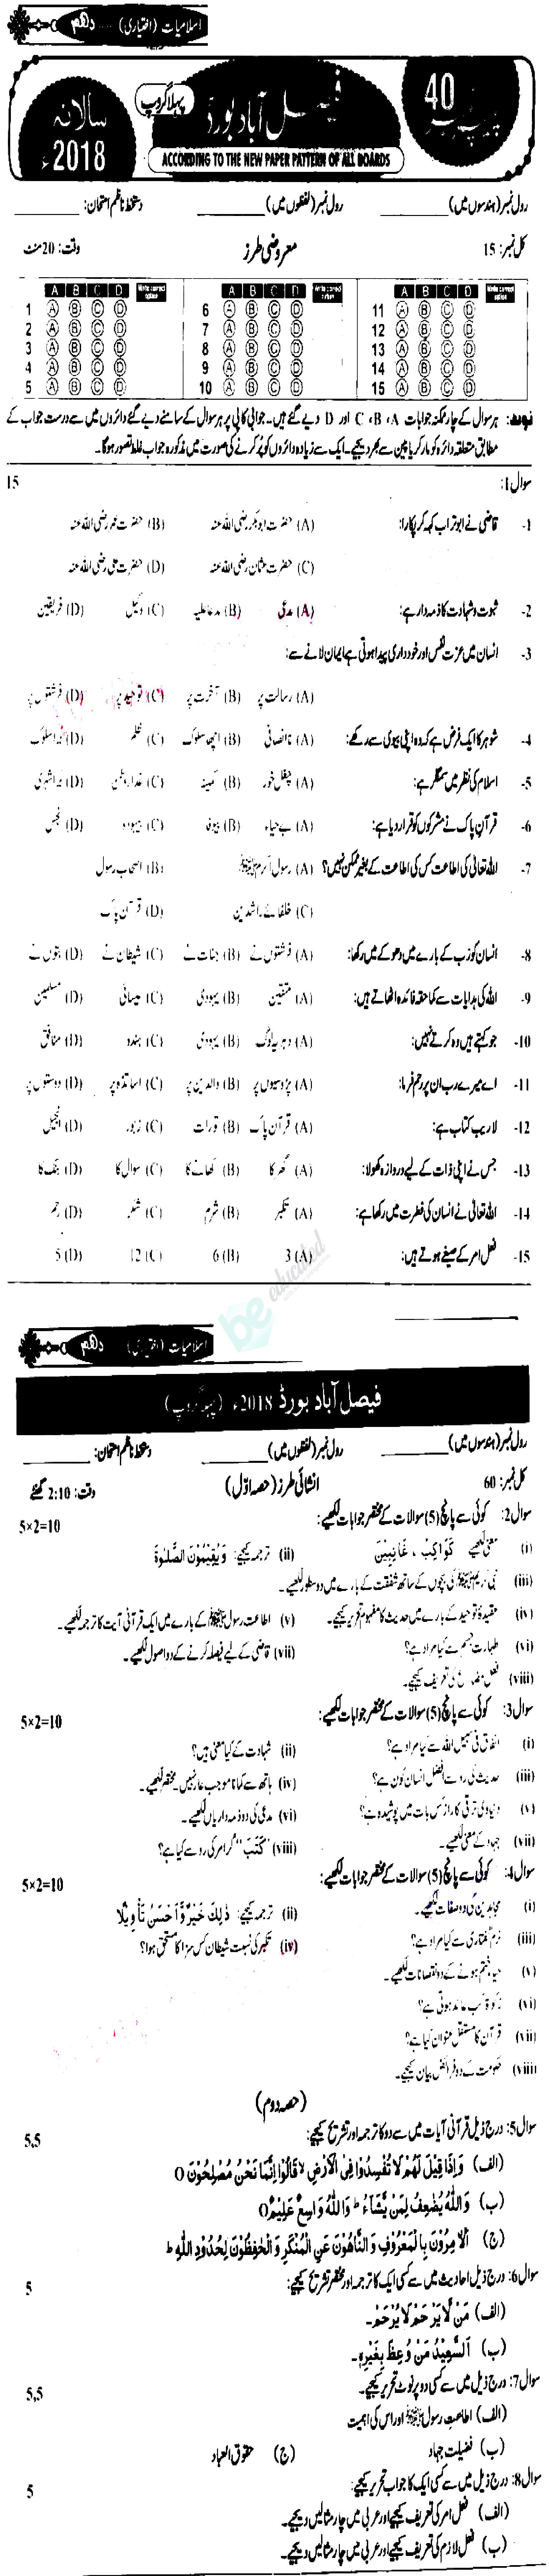 اسلامیات (اختیاری) ..... دهم
سالانہ 2018ء
پہلا گروپ
فیصل آباد بورڈ
40
ACCORDING TO THE NEW PAPER PATTERN OF ALL BOARDS
رول نمبر (ہندسوں میں) ________ رول نمبر (لفظوں میں) ________ دستخط ناظم امتحان: ________
کل نمبر: 15 معروضی طرز وقت: 20 منٹ
A B C D Write correct option A B C D Write correct option A B C D Write correct option
1 A B C D 6 A B C D 11 A B C D
2 A B C D 7 A B C D 12 A B C D
3 A B C D 8 A B C D 13 A B C D
4 A B C D 9 A B C D 14 A B C D
5 A B C D 10 A B C D 15 A B C D
نوٹ: ہر سوال کے چار ممکنہ جوابات A، B، C اور D دیے گئے ہیں۔ جوابی کاپی پر ہر سوال کے سامنے دیے گئے دائروں میں سے درست جواب کے
مطابق متعلقہ دائرہ کو مارکر یا پین سے بھر دیجیے۔ ایک سے زیادہ دائروں کو پُر کرنے کی صورت میں مذکورہ جواب غلط تصور ہوگا۔
سوال 1: 15
1- قاضی نے ابو تراب کہہ کر پکارا: (A) حضرت ابوبکر رضی اللہ عنہ (B) حضرت عمر رضی اللہ عنہ
(C) حضرت عثمان رضی اللہ عنہ (D) حضرت علی رضی اللہ عنہ
2- ثبوت و شہادت کا ذمہ دار ہے: (A) مدعی (B) مدعا علیہ (C) وکیل (D) فریقین
3- انسان میں عزت نفس اور خودداری پیدا ہوتی ہے ایمان لانے سے:
(A) رسالت پر (B) آخرت پر (C) توحید پر (D) فرشتوں پر
4- شوہر کا ایک فرض ہے کہ وہ اپنی بیوی سے رکھے: (A) ناانصافی (B) اچھا سلوک (C) ظلم (D) برا سلوک
5- اسلام کی نظر میں سمگلر ہے: (A) چغل خور (B) کمینہ (C) غدار دشمن (D)
6- قرآن پاک نے مشرکوں کو قرار دیا ہے: (A) بے حیاء (B) بیوفا (C) بیہودہ (D) نجس
7- اللہ تعالیٰ کی اطاعت کس کی اطاعت کے بغیر ممکن نہیں؟ (A) رسول اکرم ﷺ (B) اصحاب رسول
(C) خلفائے راشدین (D) قرآن پاک
8- انسان کو رب کے بارے میں دھوکے میں رکھا: (A) فرشتوں نے (B) جنات نے (C) شیطان نے (D) بتوں نے
9- اللہ کی ہدایات سے کما حقہ فائدہ اٹھاتے ہیں: (A) متقین (B) یہودی (C) عیسائی (D) مسلمین
10- جو کہتے ہیں وہ کرتے نہیں: (A) دہریہ لوگ (B) یہودی (C) ہندو (D) منافق
11- اے میرے رب ان پر رحم فرما: (A) پڑوسیوں پر (B) والدین پر (C) اساتذہ پر (D) دوستوں پر
12- لاریب کتاب ہے: (A) قرآن پاک (B) تورات (C) زبور (D) انجیل
13- جس نے اپنی ذات کے لیے دروازہ کھولا: (A) گھر کا (B) کھانے کا (C) سوال کا (D) بنک کا
14- اللہ تعالیٰ نے انسان کی فطرت میں رکھا ہے: (A) تکبر (B) شرم (C) شکر (D) رحم
15- فعل امر کے صیغے ہوتے ہیں: (A) 3 (B) 6 (C) 12 (D) 5
be educated
اسلامیات (اختیاری) دهم
فیصل آباد بورڈ 2018ء (پہلا گروپ)
رول نمبر (ہندسوں میں) ________ رول نمبر (لفظوں میں) ________ دستخط ناظم امتحان: ________
کل نمبر: 60 انشائی طرز (حصہ اوّل) وقت: 2:10 گھنٹے
سوال 2: کوئی سے پانچ (5) سوالات کے مختصر جوابات لکھیے: 5×2=10
(i) معنی لکھیے كَوَاكِبْ ، غَآئِبِيْنَ (ii) ترجمہ کیجیے: وَيُقِيْمُوْنَ الصَّلٰوةَ
(iii) نبی کریم ﷺ کی بچوں کے ساتھ شفقت کے بارے میں دو سطور لکھیے۔
(iv) عقیدۂ توحید کے بارے میں حدیث کا مفہوم تحریر کیجیے۔ (v) اطاعت رسول ﷺ کے بارے میں ایک قرآنی آیت کا ترجمہ لکھیے۔
(vi) طہارت جسم سے کیا مراد ہے؟ (vii) قاضی کے لیے فیصلہ کرنے کے دو اصول لکھیے۔
(viii) فعل مضارع کی تعریف کیجیے۔
سوال 3: کوئی سے پانچ (5) سوالات کے مختصر جوابات لکھیے: 5×2=10
(i) انفاق فی سبیل اللہ سے کیا مراد ہے؟ (ii) شہادت کے کیا معنی ہیں؟
(iii) حدیث کی رو سے افضل انسان کون ہے؟ (iv) ہاتھ سے کمانا موجب عار نہیں۔ مختصر لکھیے۔
(v) دنیاوی ترقی کا راز کس بات میں پوشیدہ ہے؟ (vi) مدعی کی دو ذمہ داریاں لکھیے۔
(vii) جہاد کے معنی لکھیے۔ (viii) "كَتَبَ" گرامر کی رو سے کیا ہے؟
سوال 4: کوئی سے پانچ (5) سوالات کے مختصر جوابات لکھیے: 5×2=10
(i) مجاہدین کی دو صفات لکھیے۔ (ii) ترجمہ کیجیے: ذٰلِكَ خَيْرٌ وَّاَحْسَنُ تَاْوِيْلًا
(iii) نرم گفتاری سے کیا مراد ہے؟ (iv) تکبر کی نسبت شیطان کس سزا کا مستحق ہوا؟
(v) حیا ختم ہونے کے دو نقصانات لکھیے۔
(vi) زکوٰۃ کب عائد ہوتی ہے؟
(vii) قرآن کا مستقل عنوان کیا ہے؟
(viii) حکومت کے دو فرائض بیان کیجیے۔
(حصہ دوم)
سوال 5: درج ذیل قرآنی آیات میں سے دو کا ترجمہ اور تشریح کیجیے: 5,5
(الف) وَاِذَا قِيْلَ لَهُمْ لَا تُفْسِدُوْا فِى الْاَرْضِ لا قَالُوْا اِنَّمَا نَحْنُ مُصْلِحُوْنَ O
(ب) وَاللّٰهُ يُضٰعِفُ لِمَنْ يَّشَآءُ ط وَاللّٰهُ وَاسِعٌ عَلِيْمٌ O
(ج) اَلْاٰمِرُوْنَ بِالْمَعْرُوْفِ وَالنَّاهُوْنَ عَنِ الْمُنْكَرِ وَالْحٰفِظُوْنَ لِحُدُوْدِ اللّٰهِ ط
سوال 6: درج ذیل احادیث میں سے کسی ایک کا ترجمہ اور مختصر تشریح کیجیے: 5
(الف) مَنْ لَّا يَرْحَمْ لَا يُرْحَمْ۔
(ب) اَلسَّعِيْدُ مَنْ وُعِظَ بِغَيْرِهٖ۔
سوال 7: درج ذیل میں سے کسی دو پر نوٹ تحریر کیجیے۔ 5,5
(الف) اطاعت رسول ﷺ اور اس کی اہمیت
(ب) فضیلت جہاد (ج) حقوق العباد
سوال 8: درج ذیل میں سے کسی ایک کا جواب تحریر کیجیے: 5
(الف) فعل امر کی تعریف کیجیے اور عربی میں چار مثالیں دیجیے۔
(ب) فعل لازم کی تعریف کیجیے اور عربی میں چار مثالیں دیجیے۔